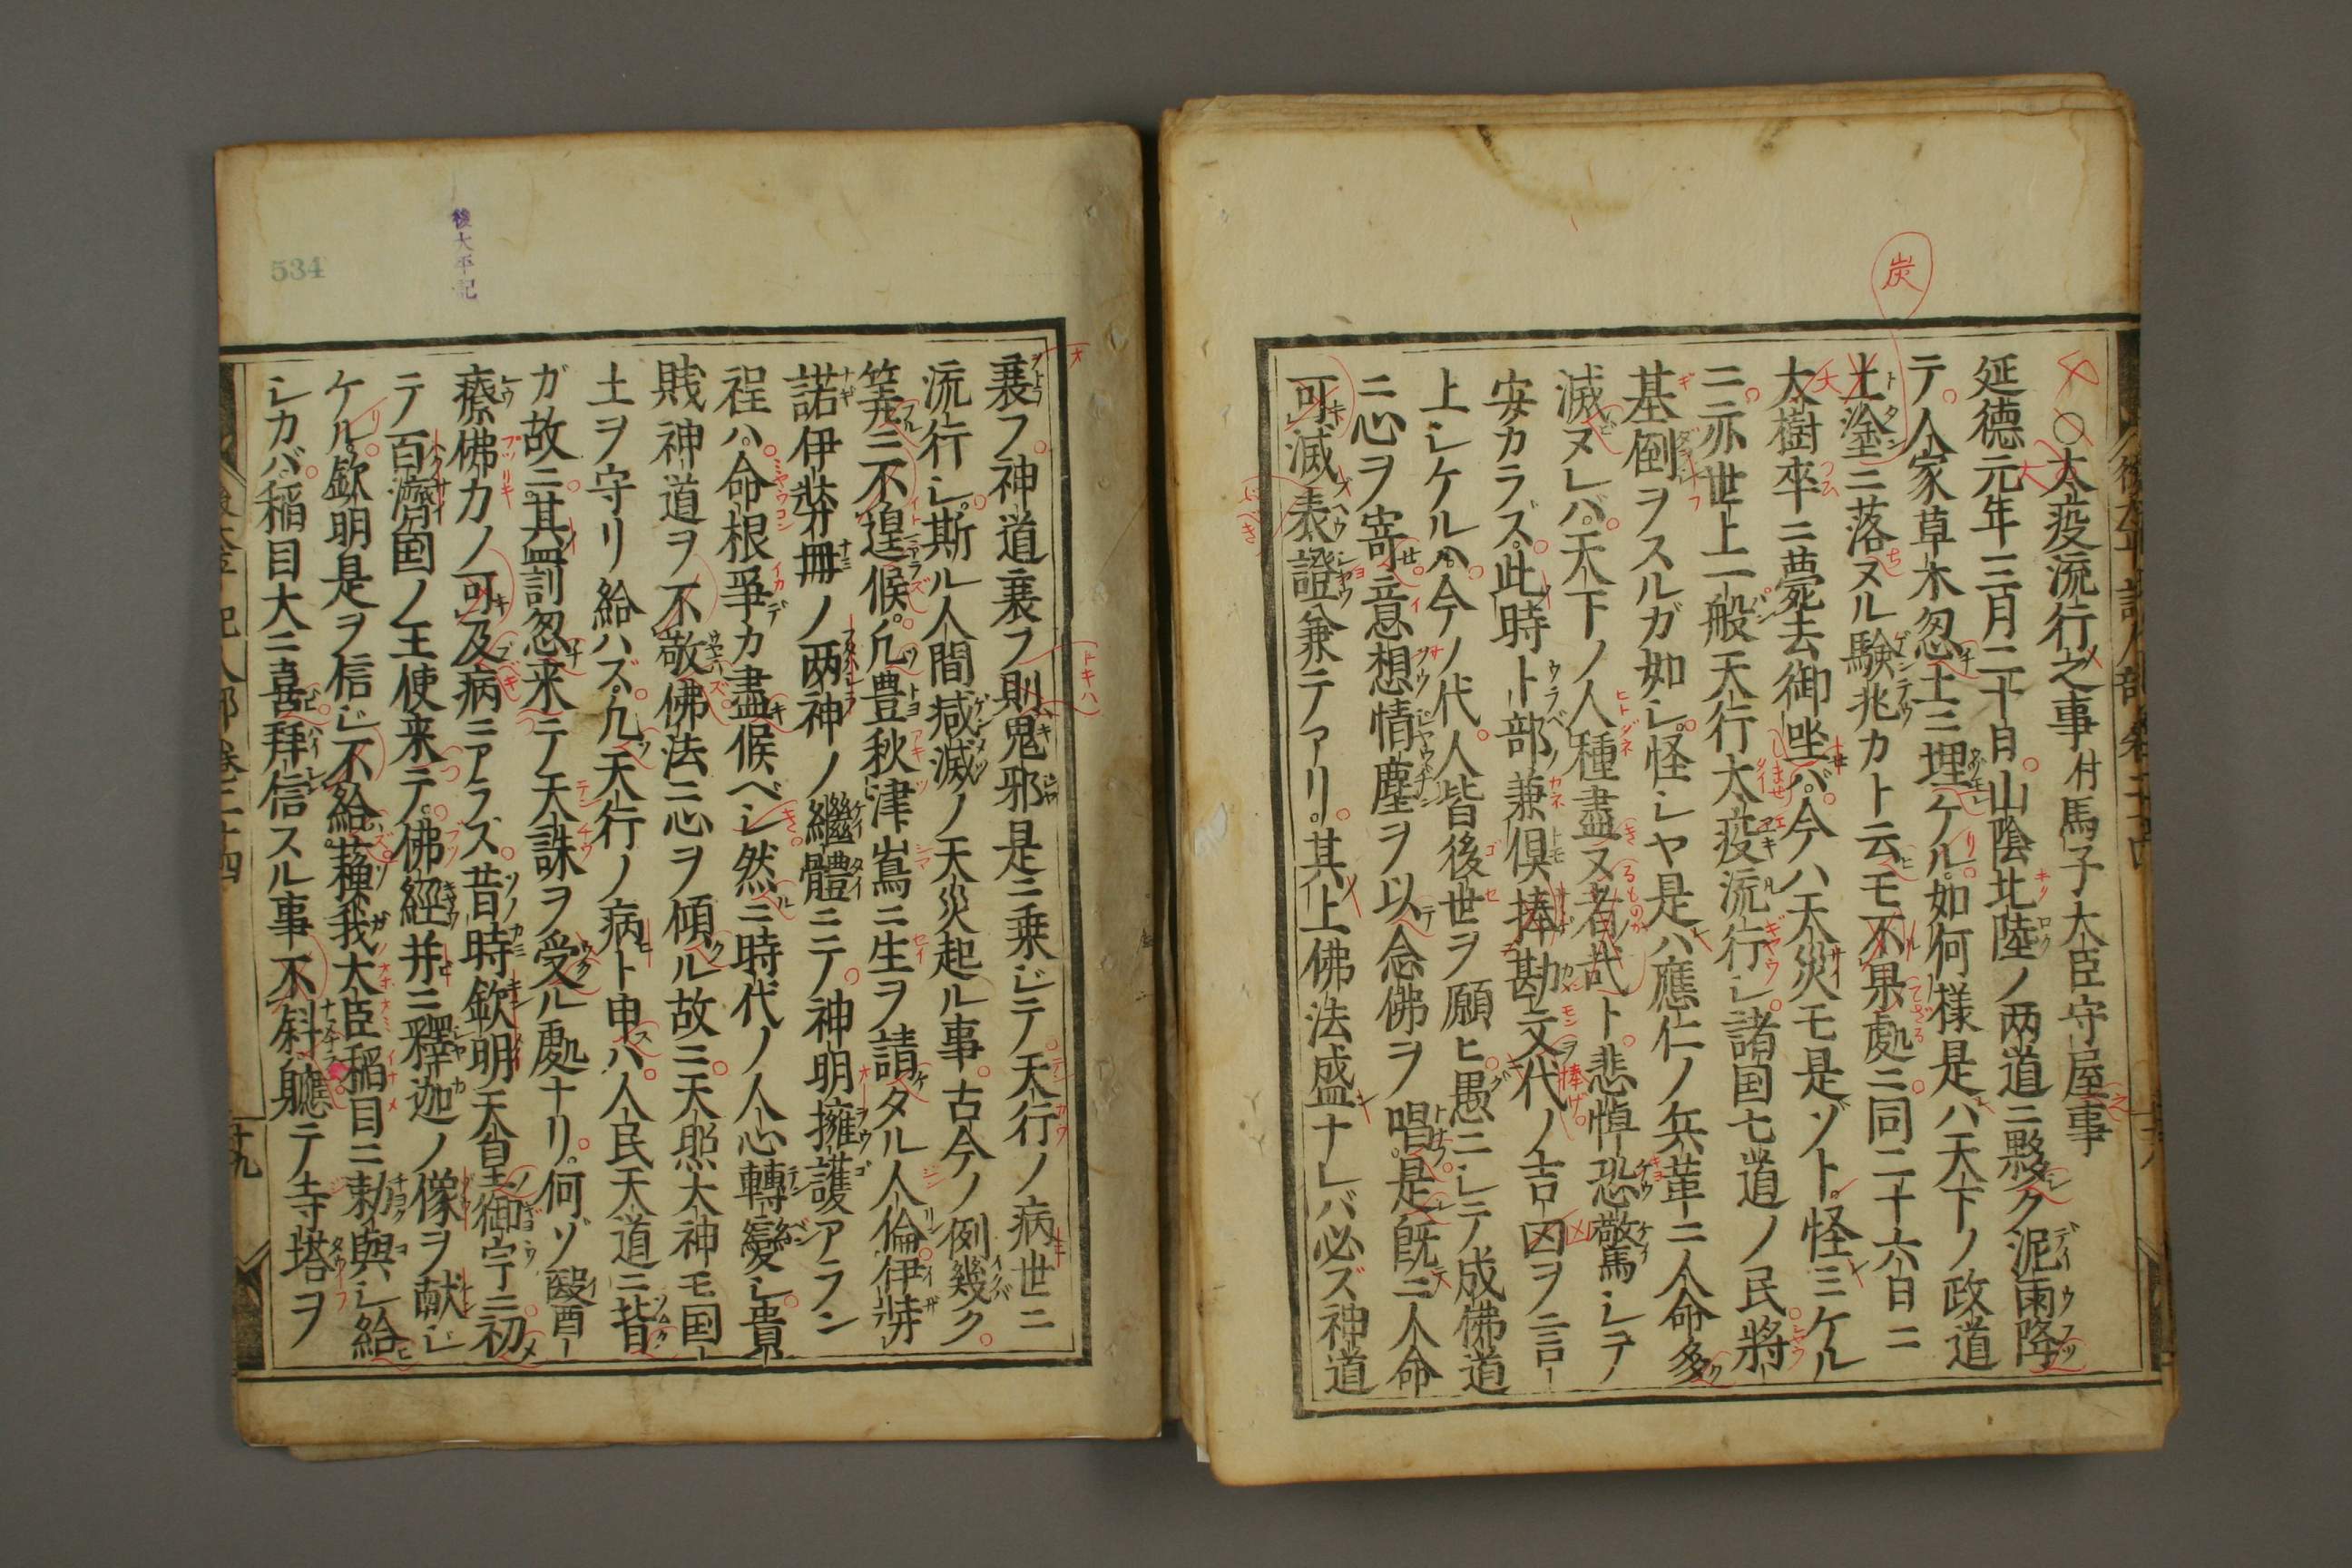 ○大疫流行之事付馬子大臣守屋事
延德元年三月二十日山陰北陸ノ両道ニ夥ク泥雨降
テ人家草木忽土ニ埋ケル如何様是ハ天下ノ政道
土塗ニ落ヌル驗兆カト云モ不果處ニ同二十六日ニ
大樹卒ニ薨去御坐バ今ハ天災モ是ゾト怪ミケル
ニ亦世上一般天行大疫流行シ諸国七道ノ民將
基倒ヲスルガ如シ怪シヤ是ハ應仁ノ兵革ニ人命多
滅ヌレバ天下ノ人種盡ヌ者哉ト悲悼恐驚シテ
安カラズ此時卜部兼倶捧勘文代ノ吉凶ヲ言
上シケルハ今ノ代人皆後世ヲ願ヒ愚ニシテ成佛道
ニ心ヲ寄意想情塵ヲ以念佛ヲ唱是既ニ人命
可滅表證兼テアリ其上佛法盛ナレバ必ズ神道
衰フ神道衰フ則鬼邪是ニ乗ジテ天行ノ病世ニ
流行シ斯ル人間減滅ノ天災起ル事古今ノ例幾ク
筭ニ不遑候凢豊秋津嶌ニ生ヲ請タル人倫伊弉
諾伊弉冊ノ両神ノ繼體ニテ神明擁護アラン
程ハ命根爭カ盡候ベシ然ニ時代ノ人心轉變シ貴
賎神道ヲ不敬佛法ニ心ヲ傾ル故ニ天照太神モ国
土ヲ守リ給ハズ凢天行ノ病ト申ハ人民天道ニ背
ガ故ニ其罰忽来テ天誅ヲ受ル處ナリ何ゾ醫
療佛力ノ可及病ニアラズ昔時欽明天皇御宇ニ初
テ百濟国ノ王使来テ佛經并ニ釋迦ノ像ヲ献ジ
ケル欽明是ヲ信ジ不給蘓我大臣稲目ニ勅與シ給
シカバ稲目大ニ喜拜信スル事不斜軈テ寺塔ヲ
後太平記人部卷三十四
十九
後太平記
534
炭